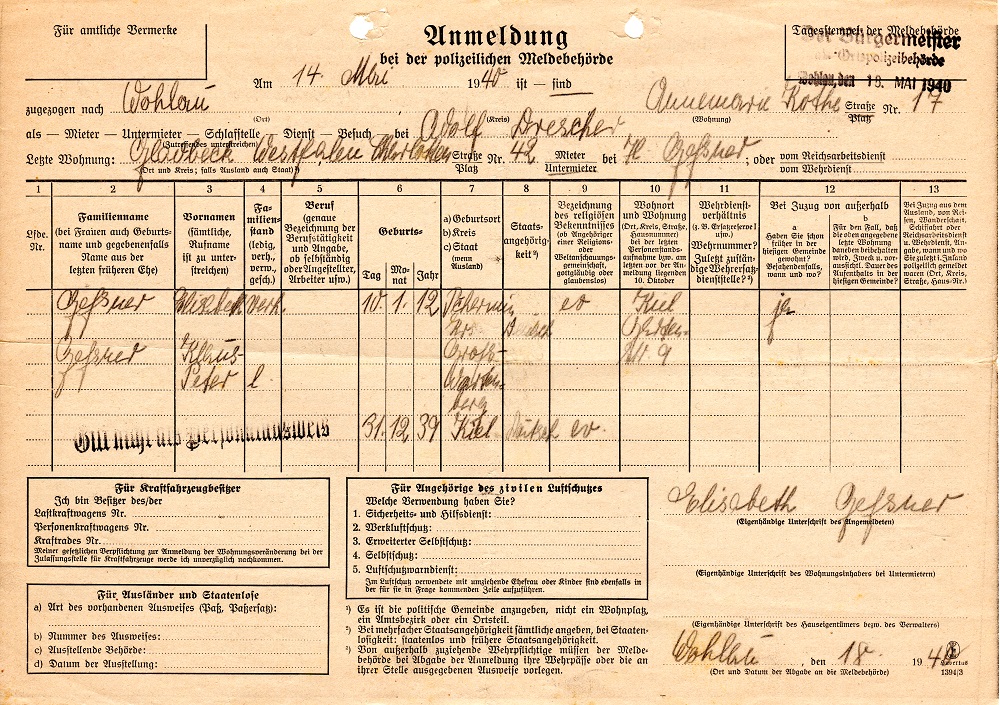 Für amtliche Vermerke
Anmeldung
bei der polizeilichen Meldebehörde
Tagesstempel der Meldebehörde
Der Bürgermeister
Ortspolizeibehörde
Wohlau, den 18. MAI 1940
Am 14. Mai 1940 ist — sind
zugezogen nach Wohlau Annemarie Kothe Straße Platz Nr. 17
(Ort) (Kreis) (Wohnung)
als — Mieter — Untermieter — Schlafstelle — Dienst — Besuch — bei Adolf Drescher
(Zutreffendes unterstreichen)
Letzte Wohnung: Gladbeck Westfalen Straße Platz Nr. 42 Mieter Untermieter bei H. Geßner; oder vom Reichsarbeitsdienst vom Wehrdienst
(Ort und Kreis; falls Ausland auch Staat)
1 2 3 4 5 6 7 8 9 10 11 12 13
Lfde. Nr.
Familienname (bei Frauen auch Geburtsname und gegebenenfalls Name aus der letzten früheren Ehe)
Vornamen (sämtliche, Rufname ist zu unterstreichen)
Familienstand (ledig, verh., verw., gesch.)
Beruf (genaue Bezeichnung der Berufstätigkeit und Angabe, ob selbständig oder Angestellter, Arbeiter usw.)
Geburts-
Tag Monat Jahr
a) Geburtsort b) Kreis c) Staat (wenn Ausland)
Staatsangehörigkeit²)
Bezeichnung des religiösen Bekenntnisses (ob Angehöriger einer Religions- oder Weltanschauungsgemeinschaft, gottgläubig oder glaubenslos)
Wohnort und Wohnung (Ort, Kreis, Straße, Hausnummer) bei der letzten Personenstandsaufnahme bzw. am letzten vor der Anmeldung liegenden 10. Oktober
Wehrdienstverhältnis (z. B. Ersatzreserve I usw.) Wehrnummer? Zuletzt zuständige Wehrersatzdienststelle?³)
Bei Zuzug von außerhalb
a Haben Sie schon früher in der hiesigen Gemeinde gewohnt? Bejahendenfalls, wann und wo?
b Für den Fall, daß die oben angegebene letzte Wohnung daneben beibehalten wird, Zweck u. voraussichtl. Dauer des Aufenthalts in der hiesigen Gemeinde?
Bei Zuzug aus dem Ausland, von Reisen, Wanderschaft, Schiffahrt oder Reichsarbeitsdienst u. Wehrdienst, Angabe, wann und wo Sie zuletzt i. Inland polizeilich gemeldet waren (Ort, Kreis, Straße, Haus-Nr.)
Geßner Elisabeth verh. 10. 1. 12 ev Kiel ja
Geßner Klaus- Groß- Nr. 9
Peter l Wartenberg
31. 12 39 Kiel Deutsch ev.
Gilt nicht als Personalausweis
Für Kraftfahrzeugbesitzer
Ich bin Besitzer des/der
Lastkraftwagens Nr.
Personenkraftwagens Nr.
Kraftrades Nr.
Meiner gesetzlichen Verpflichtung zur Anmeldung der Wohnungsveränderung bei der
Zulassungsstelle für Kraftfahrzeuge werde ich unverzüglich nachkommen.
Für Ausländer und Staatenlose
a) Art des vorhandenen Ausweises (Paß, Paßersatz):
b) Nummer des Ausweises:
c) Ausstellende Behörde:
d) Datum der Ausstellung:
Für Angehörige des zivilen Luftschutzes
Welche Verwendung haben Sie?
1. Sicherheits- und Hilfsdienst:
2. Werkluftschutz:
3. Erweiterter Selbstschutz:
4. Selbstschutz:
5. Luftschutzwarndienst:
Im Luftschutz verwendete mit umziehende Ehefrau oder Kinder sind ebenfalls in
der für sie in Frage kommenden Zeile aufzuführen.
¹) Es ist die politische Gemeinde anzugeben, nicht ein Wohnplatz,
ein Amtsbezirk oder ein Ortsteil.
²) Bei mehrfacher Staatsangehörigkeit sämtliche angeben, bei Staatenlosigkeit: staatenlos und frühere Staatsangehörigkeit.
³) Von außerhalb zuziehende Wehrpflichtige müssen der Meldebehörde bei Abgabe der Anmeldung ihre Wehrpässe oder die an
ihrer Stelle ausgegebenen Ausweise vorlegen.
Elisabeth Geßner
(Eigenhändige Unterschrift des Angemeldeten)
(Eigenhändige Unterschrift des Wohnungsinhabers bei Untermietern)
(Eigenhändige Unterschrift des Hauseigentümers bzw. des Verwalters)
Wohlau, den 18. 1940
(Ort und Datum der Abgabe an die Meldebehörde)
Libertas
1394/3